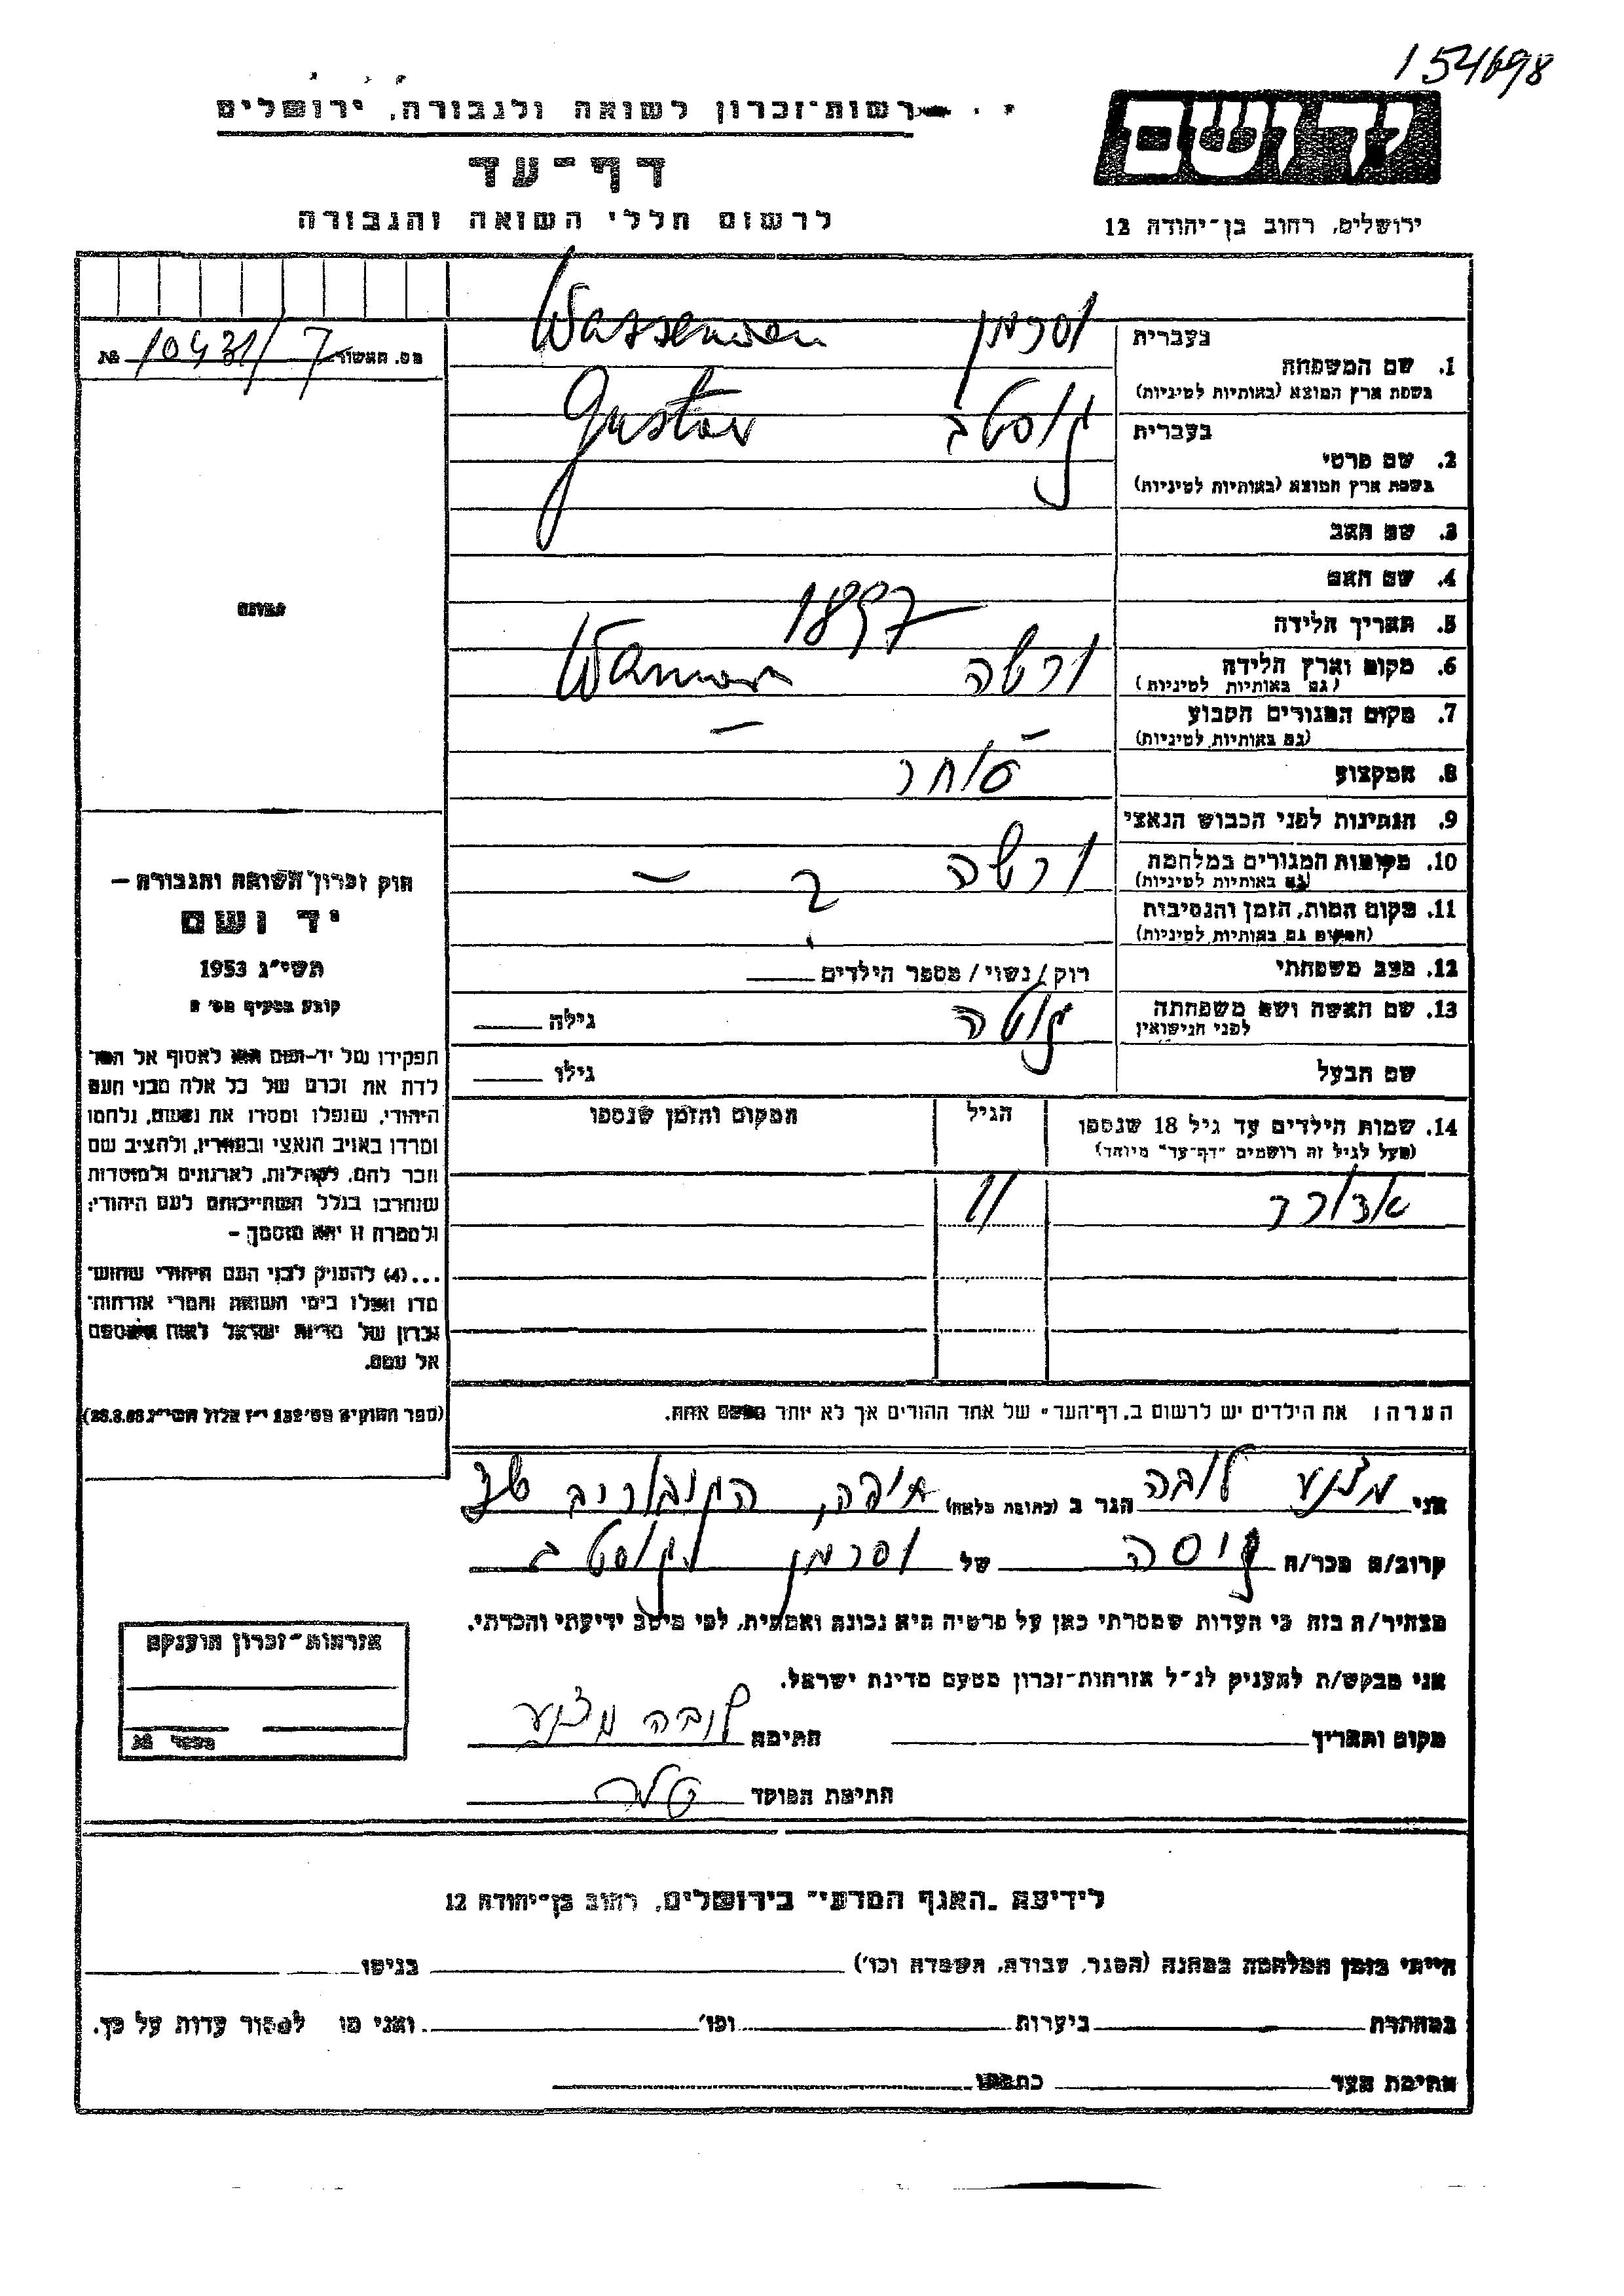 154698
רשות-זכרון לשואה ולגבורה, ירושלים
יד ושם
דף-עד
לרשום חללי השואה והגבורה
ירושלים, רחוב בן-יהודה 12
מס. האשור 10431/7 №
בעברית וסרמן Wasserman
1. שם המשפחה
בשפת ארץ המוצא (באותיות לטיניות)
בעברית גוסטב Gustav
2. שם פרטי
בשפת ארץ המוצא (באותיות לטיניות)
3. שם האב
4. שם האם
5. תאריך הלידה 1897
6. מקום וארץ הלידה ורשה
(גם באותיות לטיניות)
7. מקום המגורים הקבוע – –
(גם באותיות לטיניות)
8. המקצוע סוחר
9. הנתינות לפני הכבוש הנאצי
10. מקומות המגורים במלחמה ורשה –
(גם באותיות לטיניות)
11. מקום המות, הזמן והנסיבות ?
(המקום גם באותיות לטיניות)
12. מצב משפחתי רווק/נשוי/ מספר הילדים
13. שם האשה ושם משפחתה גוטה גילה
לפני הנישואין
שם הבעל גילו
14. שמות הילדים עד גיל 18 שנספו הגיל המקום והזמן שנספו
(מעל לגיל זה רושמים "דף-עד" מיוחד)
אדורד 11
הערה: את הילדים יש לרשום ב"דף-העד" של אחד ההורים אך לא יותר מפעם אחת.
תמונה
חוק זכרון השואה והגבורה –
יד ושם
תשי"ג 1953
קובע בסעיף מס' 2
תפקידו של יד-ושם הוא לאסוף אל המו־
לדת את זכרם של כל אלה מבני העם
היהודי, שנפלו ומסרו את נפשם, נלחמו
ומרדו באויב הנאצי ובעוזריו, ולהציב שם
וזכר להם, לקהילות, לארגונים ולמוסדות
שנחרבו בגלל השתייכותם לעם היהודי;
ולמטרה זו יהא מוסמך –
...(4) להעניק לבני העם היהודי שהוש־
מדו ונפלו בימי השואה והמרי אזרחות־
זכרון של מדינת ישראל לאות היאספם
אל עמם.
(ספר החוקים מס' 132 י"ז אלול תשי"ג 28.8.53)
אני לובה הגר ב (כתובת מלאה) חיפה,
קרוב/ה מכר/ה גיסה של וסרמן גוסטב
מצהיר/ה בזה כי העדות שמסרתי כאן על פרטיה היא נכונה ואמתית, לפי מיטב ידיעתי והכרתי.
אני מבקש/ת להעניק לנ"ל אזרחות-זכרון מטעם מדינת ישראל.
מקום ותאריך חתימה לובה
חתימת הפוקד
אזרחות-זכרון הוענקה
מספר №
לידיעת "האגף המדעי" בירושלים, רחוב בן-יהודה 12
הייתי בזמן המלחמה במחנה (הסגר, עבודה, השמדה וכו') בגיטו
במחתרת ביערות וכו' ואני מו לאסור עדות על כך.
חתימת העד כתבתו